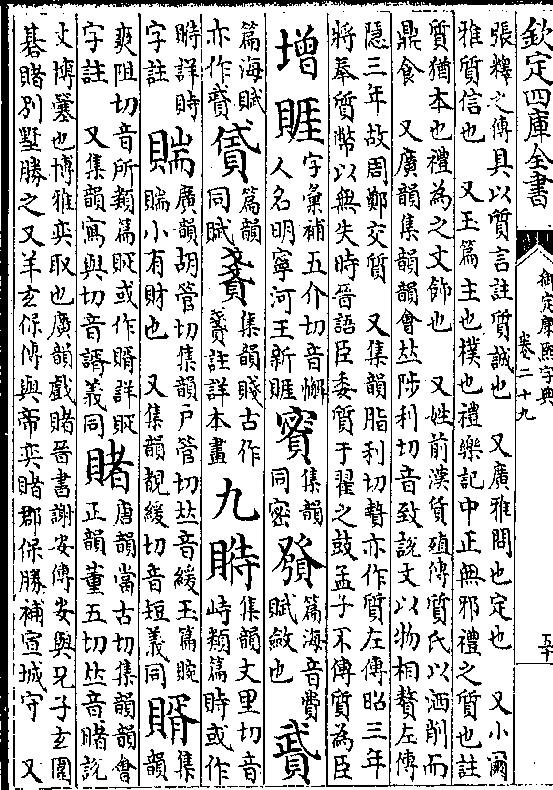 欽定四庫全書
御定康熙字典
卷二十九
五十
張釋之傳具以質言註質誠也　又廣雅問也定也　又小爾
雅質信也　又玉篇主也樸也禮樂記中正無邪禮之質也註
質猶本也禮為之文飾也　又姓前漢貨殖傳質氏以洒削而
鼎食　又廣韻集韻韻會𠀤陟利切音致說文以物相贅左傳
隱三年故周鄭交質　又集韻脂利切贄亦作質左傳昭三年
將奉質幣以無失時晉語臣委質于翟之鼓孟子不傳質為臣
增
字彙補五介切音懈
人名明寧河王新
賔
集韻
同密
篇海音費
賦斂也
篇海賦
亦作
篇韻
同賦
集韻賤古作
註詳本畫
九
集韻丈里切音
峙類篇
或作
詳
字註
廣韻胡管切集韻戶管切𠀤音緩玉篇
小有財也　又集韻覩緩切音短義同
集韻
爽阻切音所類篇
或作
詳
字註　又集韻寫與切音諝義同
賭
唐韻當古切集韻韻會
正韻董五切𠀤音睹說
文博簺也博雅弈取也廣韻戲賭晉書謝安傳安與兄子玄圍
碁賭別墅勝之又羊玄保傳與帝弈賭郡保勝補宣城守　又